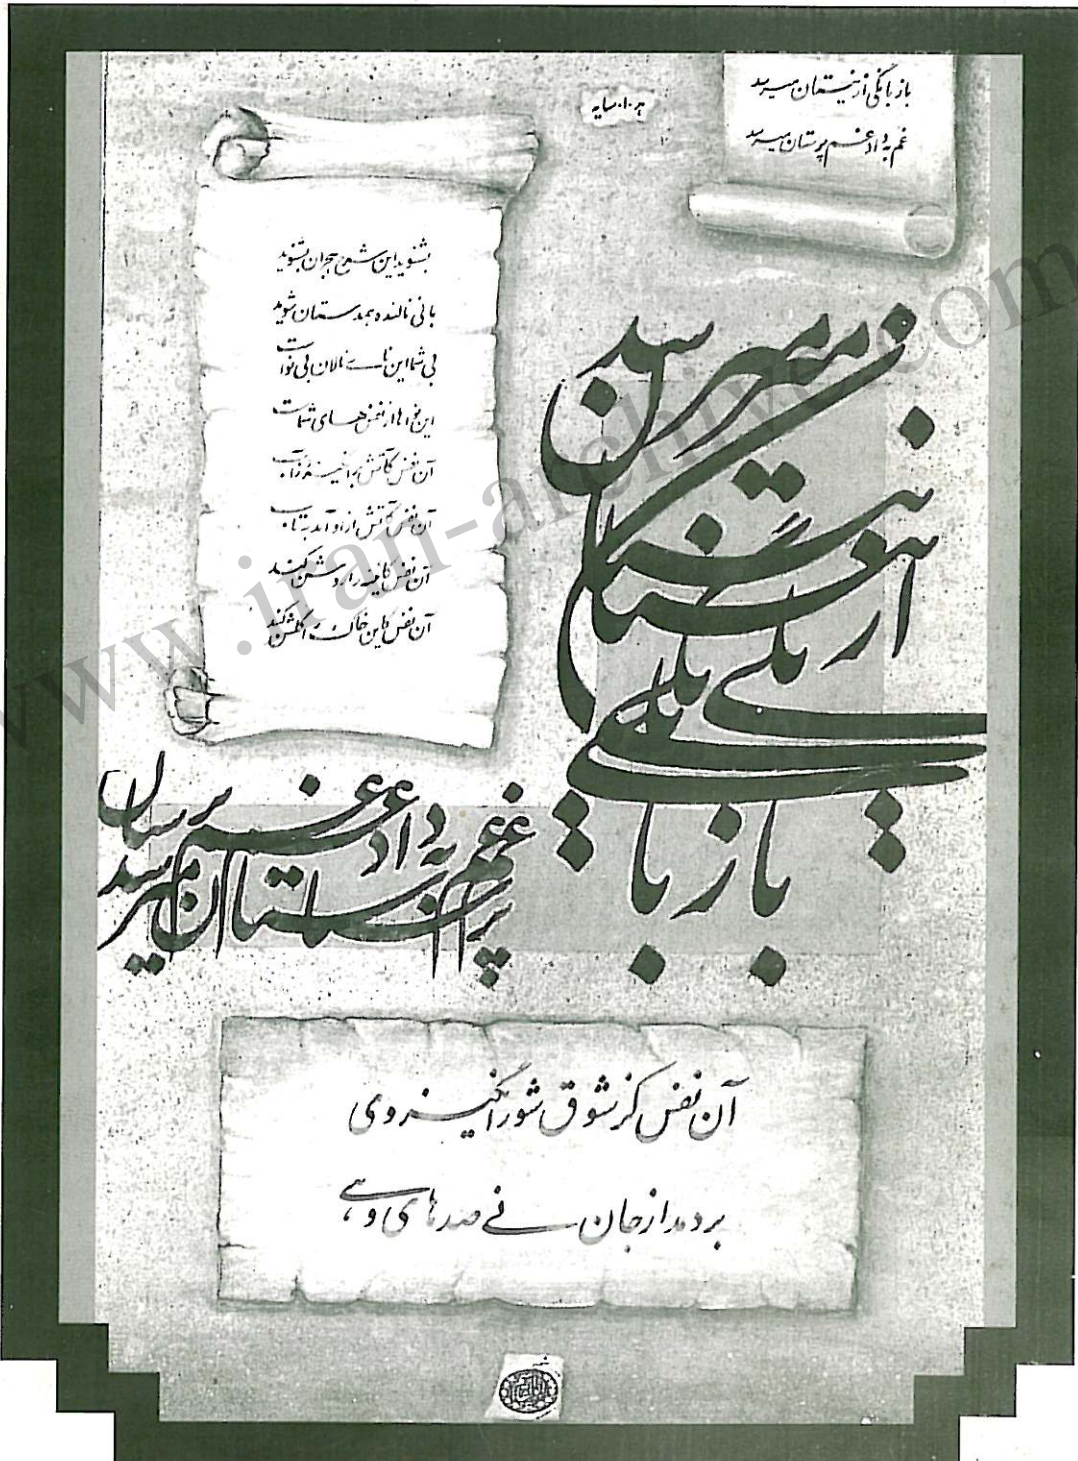 باز بانگی از نیستان میرسد
غم به داد غم پرستان میرسد
ه . ا . سایه
بشنوید این شرح هجران بشنوید
با نی نالنده همدستان شوید
بی شما این نای نالان بی نواست
این نواها از نفس های شماست
آن نفس کآتش برانگیزد ز آب
آن نفس کآتش از او آمد به تاب
آن نفس کآیینه را روشن کند
آن نفس کاین خاک را گلشن کند
باز بانگی از نیستان میرسد
غم به داد غم پرستان میرسد
آن نفس کز شوق شورانگیز وی
بردمد از جان نی صد های و هی
www.iran-archive.com